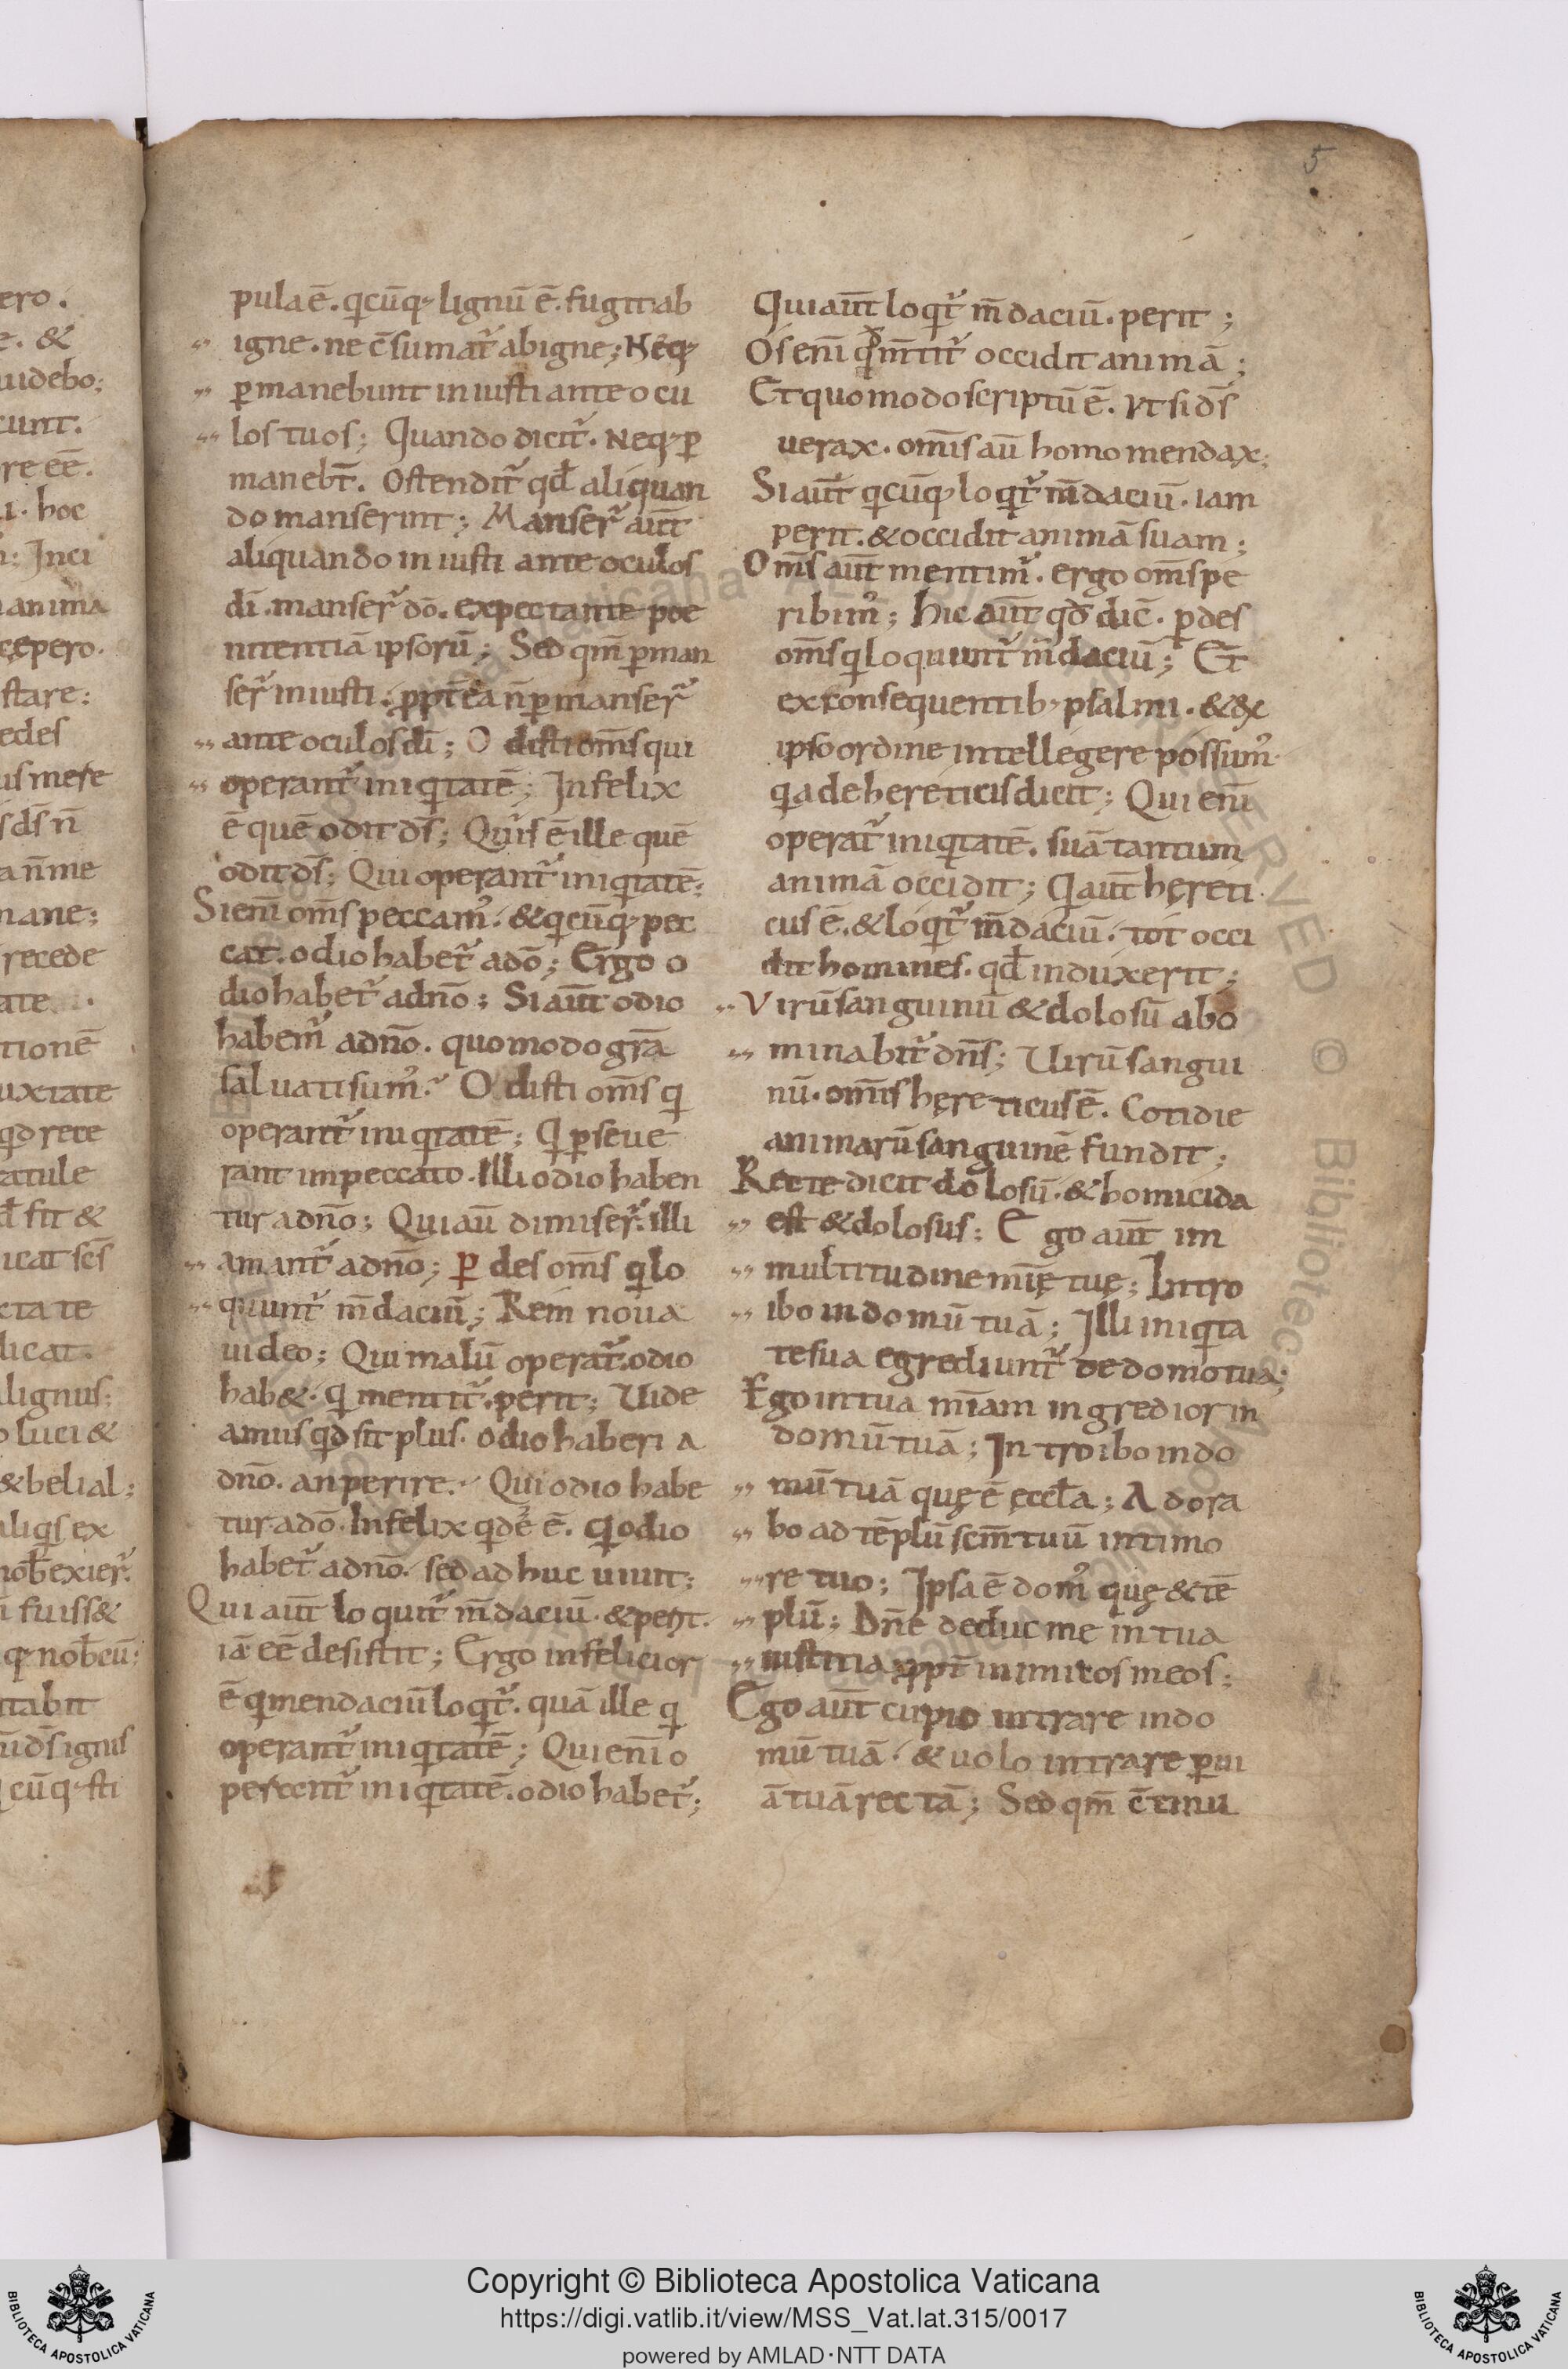 5
pula ē. qcūq; lignū ē. fugit ab
igne. ne c̄sumat᷑ ab igne; Neq;
ꝑmanebunt iniusti ante ocu
los tuos; Quando dicit᷑. Neq; ꝑ
manebt̄. Ostendit᷑ qd̄ aliquan
do manserint; Manser᷑ aūt
aliquando iniusti ante oculos
dī. manser᷑ dō. expectante poe
nitentiā ipsorū; Sed qm̄ ꝑman
ser᷑ iniusti. ꝓpt̄ea n̄ ꝑmanser᷑
ante oculos dī; Odisti om̄s qui
operant᷑ iniqitatē; Infelix
ē quē odit ds̄; Quis ē ille quē
odit ds̄; Qui operant᷑ iniqitatē;
Si eni om̄s peccam᷒. & qcūq; pec
cat. odio habet᷑ a dō; Ergo o
dio habet᷑ a dn̄o; Si aūt odio
habem᷒ a dn̄o. quomodo gr̄a
saluati sum᷒? Odisti om̄s qi
operant᷑ iniqitatē; Qi ꝑseue
rant in peccato. Illi odio haben
tur a dn̄o; Qui aū dimiser᷑. illi
amant᷑ a dn̄o; Ꝑdes om̄s qi lo
quunt᷑ m̄daciū; Rem noua
uideo; Qui malū operat᷑. odio
hab&. qi mentit᷑. perit; Uide
amus qid sit plus. odio haberi a
dn̄o. an perire? Qui odio habe
tur a dō. Infelix qidē ē. qi odio
habet᷑ a dn̄o. sed adhuc uiuit;
Qui aūt loquit᷑ m̄daciū. & perit.
iā eē desistit; Ergo infelicior
ē qi mendaciū loqit᷑. quā ille qi
operant᷑ iniqitatē; Qui enī o
perant᷑ iniqitatē. odio habet᷑;
Qui aūt loqit᷑ m̄daciū. perit;
Os enī qd m̄tit᷑ occidit animā;
Et quomodo scriptū ē. Vt si ds̄
uerax. omīs aū homo mendax;
Si aūt qcūq; loqit᷑ m̄daciū. iam
perit. & occidit animā suam;
Om̄s aūt mentim᷒. ergo om̄s pe
ribim᷒; hic aūt qd̄ dic̄. ꝑdes
om̄s qi loquunt᷑ m̄daciū; Et
ex consequentib; psalmi. & ex
ipso ordine intellegere possum᷒.
qia de hereticis dicit; Qui enī
operat᷑ iniqitatē. suā tantum
animā occidit; Qi aūt hęreti
cus ē. & loqit᷑ m̄daciū. tot occi
dit homines. qd̄ induxerit;
Virū sanguinū & dolosū abo
minabit᷑ dn̄s; Uirū sangui
nū. omīs hęreticus ē. Cotidie
animarū sanguinē fundit;
Recte dicit dolosū. & homicida
est & dolosus; Ego aūt in
multitudine mīę tuę; Intro
ibo in domū tuā; Illi iniqita
te sua egrediunt᷑ de domo tua;
Ego in tua mīam ingredior in
domū tuā; Introibo in do
mū tuā quę ē ęccl̄a; Adora
bo ad tēplū scm̄ tuū in timo
re tuo; Ipsa ē dom᷒ quę & tē
plū; Dn̄e deduc me in tua
iustitia ꝓpt̄ inimicos meos;
Ego aūt cupio intrare in do
mū tuā. & uolo intrare ꝑ ui
ā tuā rectā; Sed qm̄ c̄tinu
Copyright © Biblioteca Apostolica Vaticana
https://digi.vatlib.it/view/MSS_Vat.lat.315/0017
powered by AMLAD·NTT DATA
BIBLIOTECA APOSTOLICA VATICANA
BIBLIOTECA APOSTOLICA VATICANA